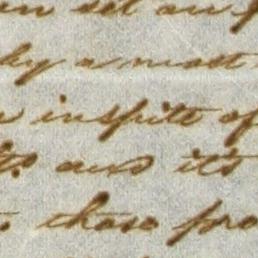 set on
by a most
inspite of
and it's
those fro